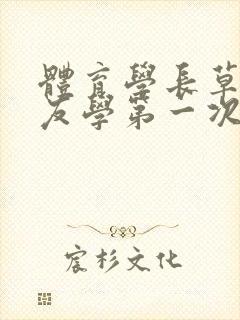 體育學長草
友學第一次
宸杉文化